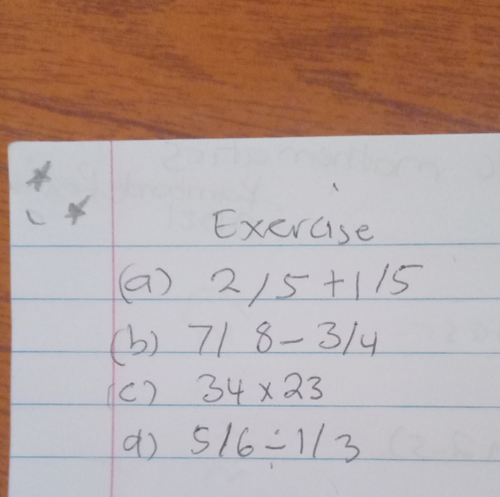 Exercise
(a) 2/5 + 1/5
(b) 7/8 - 3/4
(c) 34 x 23
d) 5/6 ÷ 1/3